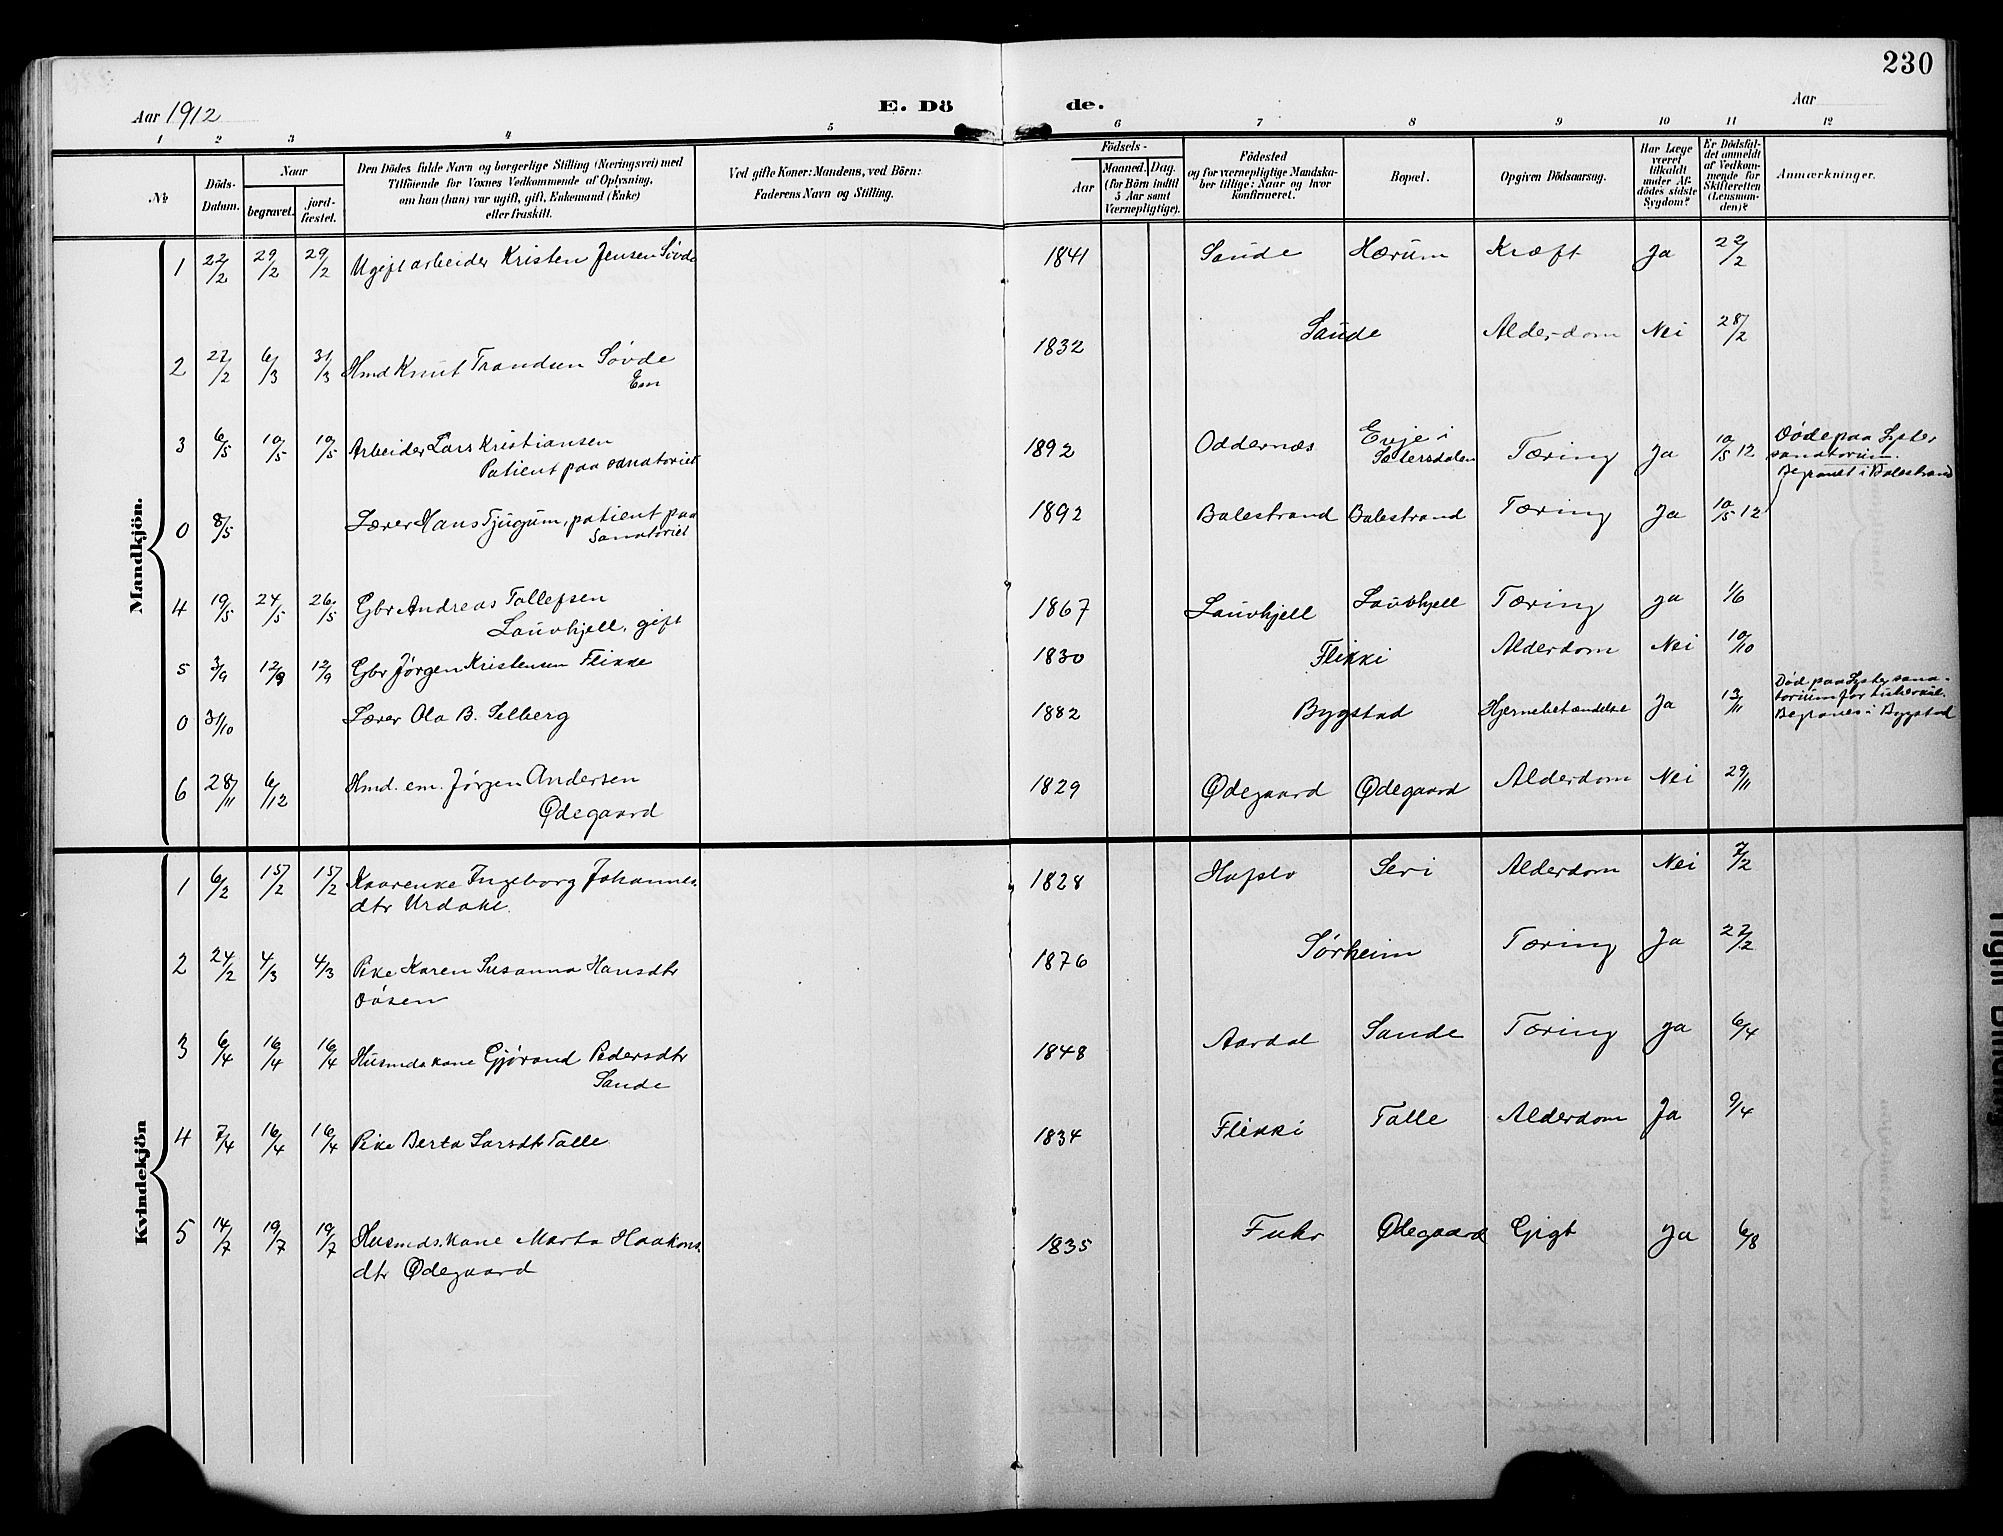 230
Aar 1912
E. Dö de.
Aar
1 2 3 4 5 6 7 8 9 10 11 12
№
Döds-
Datum.
Naar
begravet.
jord-
fæstet.
Den Dödes fulde Navn og borgerlige Stilling (Næringsvei) med
Tilföiende for Voxnes Vedkommende af Oplysning,
om han (hun) var ugift, gift, Enkemand (Enke)
eller fraskilt.
Ved gifte Koner: Mandens, ved Börn:
Faderens Navn og Stilling.
Födsels-
Aar
Maaned. Dag.
(for Börn indtil
5 Aar samt
Værnepligtige).
Födested
og for værnepligtige Mandska-
ber tillige: Naar og hvor
konfirmeret.
Bopæl.
Opgiven Dödsaarsag.
Har Læge
været
tilkaldt
under Af-
dödes sidste
Sygdom?
Er Dödsfal-
det anmeldt
af Vedkom-
mende for
Skifteretten
(Lensman-
den)?
Anmærkninger.
Mandkjön.
1 22/2 29/2 29/2 Ugift arbeider Kristen Jensen Søvde 1841 Sande Hærum Kræft Ja 22/2
2 27/2 6/3 31/3 Hmd Knut Trondsen Søvde 1832 Sande Alderdom Nei 28/2
Em
3 6/5 10/5 10/5 Arbeider Lars Kristiansen 1892 Oddernæs Evje i Sætersdalen Tæring Ja 10/5 12 Døde paa Lyster
Patient paa sanatoriet sanatorium.
Begravet i Balestrand
0 8/5 Lærer Hans Tjugum, patient paa 1892 Balestrand Balestrand Tæring Ja 10/5 12
Sanatoriet
4 19/5 24/5 26/5 Gbr Andreas Tollefsen 1867 Lauvhjell Lauvhjell Tæring Ja 1/6
Lauvhjell, gift
5 3/9 12/9 12/9 Gbr Jørgen Kristensen Flikke 1830 Flikki Alderdom Nei 10/10
0 31/10 Lærer Ola B. Selberg 1882 Bygstad Hjernebetændelse Ja 13/11 Død paa Lyster sana-
torium for tuberkul.
Begraves i Bygstad
6 28/11 6/12 Hmd. em. Jørgen Andersen 1829 Ødegaard Ødegaard Alderdom Nei 29/11
Ødegaard
Kvindekjön
1 6/2 15/2 15/2 Kaarenke Ingeborg Johannes- 1828 Hafslo Leri Alderdom Nei 7/2
dtr Urdahl.
2 24/2 4/3 4/3 Pike Karen Susanna Hansdtr 1876 Sørheim Tæring Ja 27/2
Døsen
3 6/4 16/4 16/4 Husmdskone Gjørand Pedersdtr 1848 Aardal Sande Tæring Ja 6/4
Sande
4 7/4 16/4 16/4 Pike Berta Larsdtr Talle 1834 Flikki Talle Alderdom Ja 9/4
5 14/7 19/7 19/7 Husmds.kone Marta Haakons- 1835 Fuhr Ødegaard Gigt Ja 6/8
dtr Ødegaard
Tight Binding